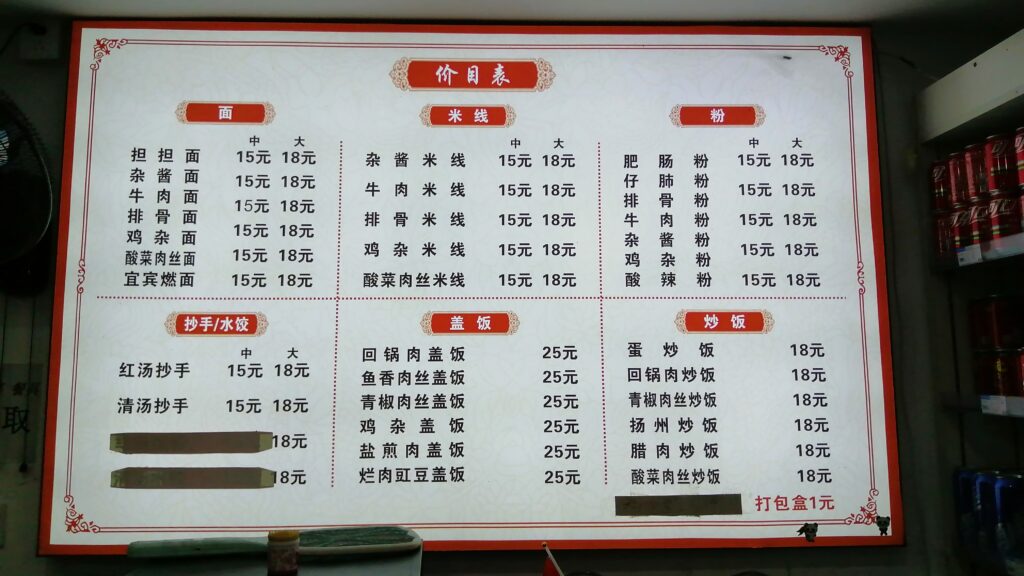 价目表
面
中 大
担担面
杂酱面
牛肉面
排骨面
鸡杂面
酸菜肉丝面
宜宾燃面
15元 18元
15元 18元
15元 18元
15元 18元
15元 18元
15元 18元
米线
中 大
杂酱米线 15元 18元
牛肉米线 15元 18元
排骨米线 15元 18元
鸡杂米线 15元 18元
酸菜肉丝米线 15元 18元
粉
中 大
肥肠粉
仔肺粉
排骨粉
牛肉粉
杂酱粉
鸡杂粉
酸辣粉
15元 18元
15元 18元
15元 18元
15元 18元
15元 18元
抄手/水饺
中 大
红汤抄手 15元 18元
清汤抄手 15元 18元
18元
18元
盖饭
回锅肉盖饭 25元
鱼香肉丝盖饭 25元
青椒肉丝盖饭 25元
鸡杂盖饭 25元
盐煎肉盖饭 25元
烂肉豇豆盖饭 25元
炒饭
蛋炒饭 18元
回锅肉炒饭 18元
青椒肉丝炒饭 18元
扬州炒饭 18元
腊肉炒饭 18元
酸菜肉丝炒饭 18元
打包盒1元
取